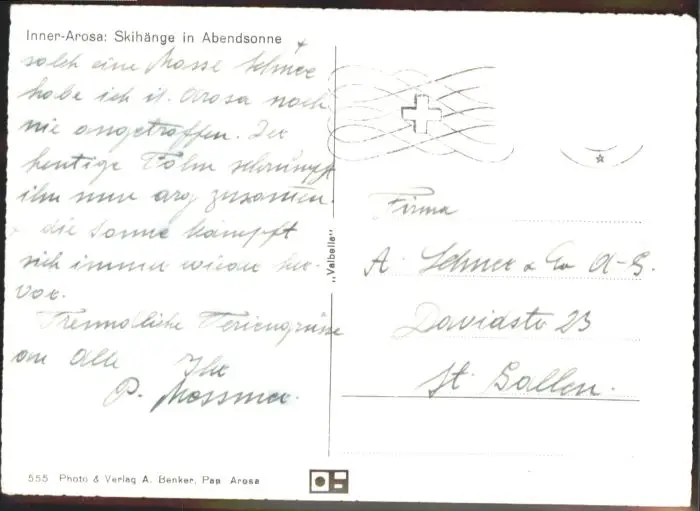 Inner-Arosa: Skihänge in Abendsonne
solch eine Masse Schnee
habe ich in Arosa noch
nie angetroffen. Der
heutige Föhn schrumpft
ihn nun arg zusammen.
die Sonne kämpft
sich immer wieder her-
vor.
Freundliche Feriengrüsse
an alle Ihr
P. Messmer.
"Valbella"
Firma
A. & Co A-G.
Davidstr 23
St. Gallen.
555 Photo & Verlag A. Benker, Pap Arosa